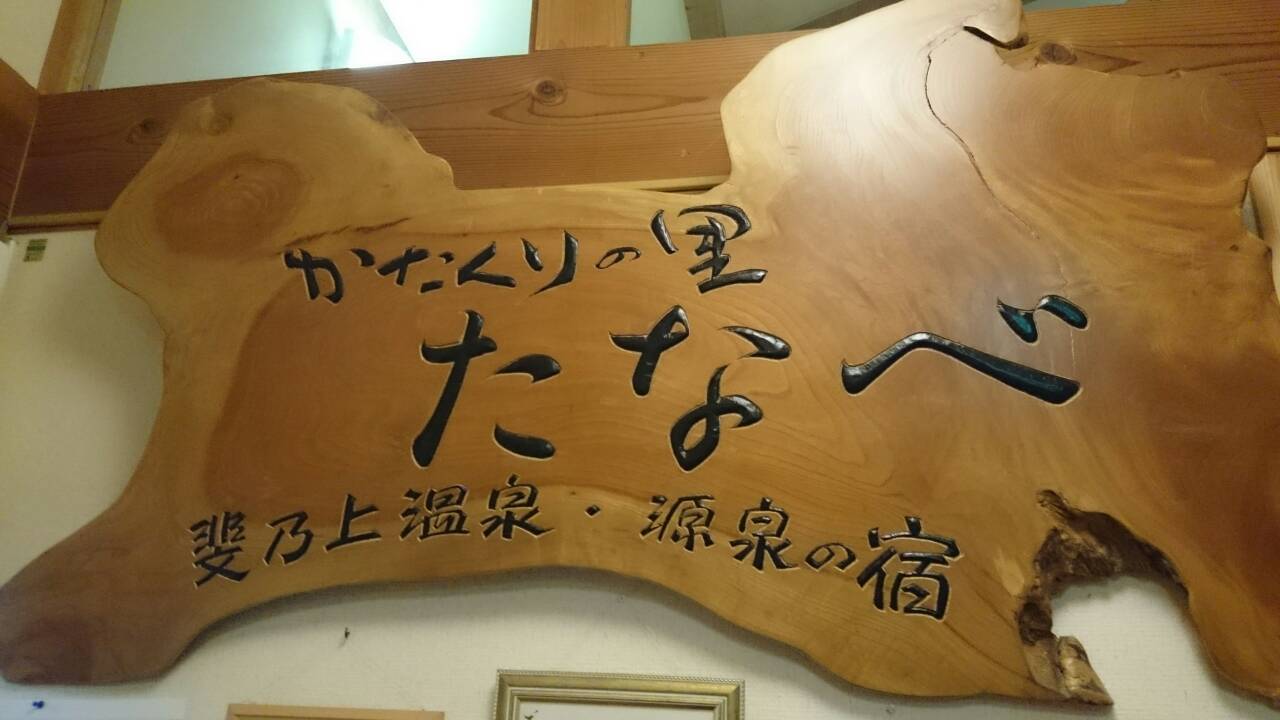 かたくりの里
たなべ
斐乃上温泉・源泉の宿